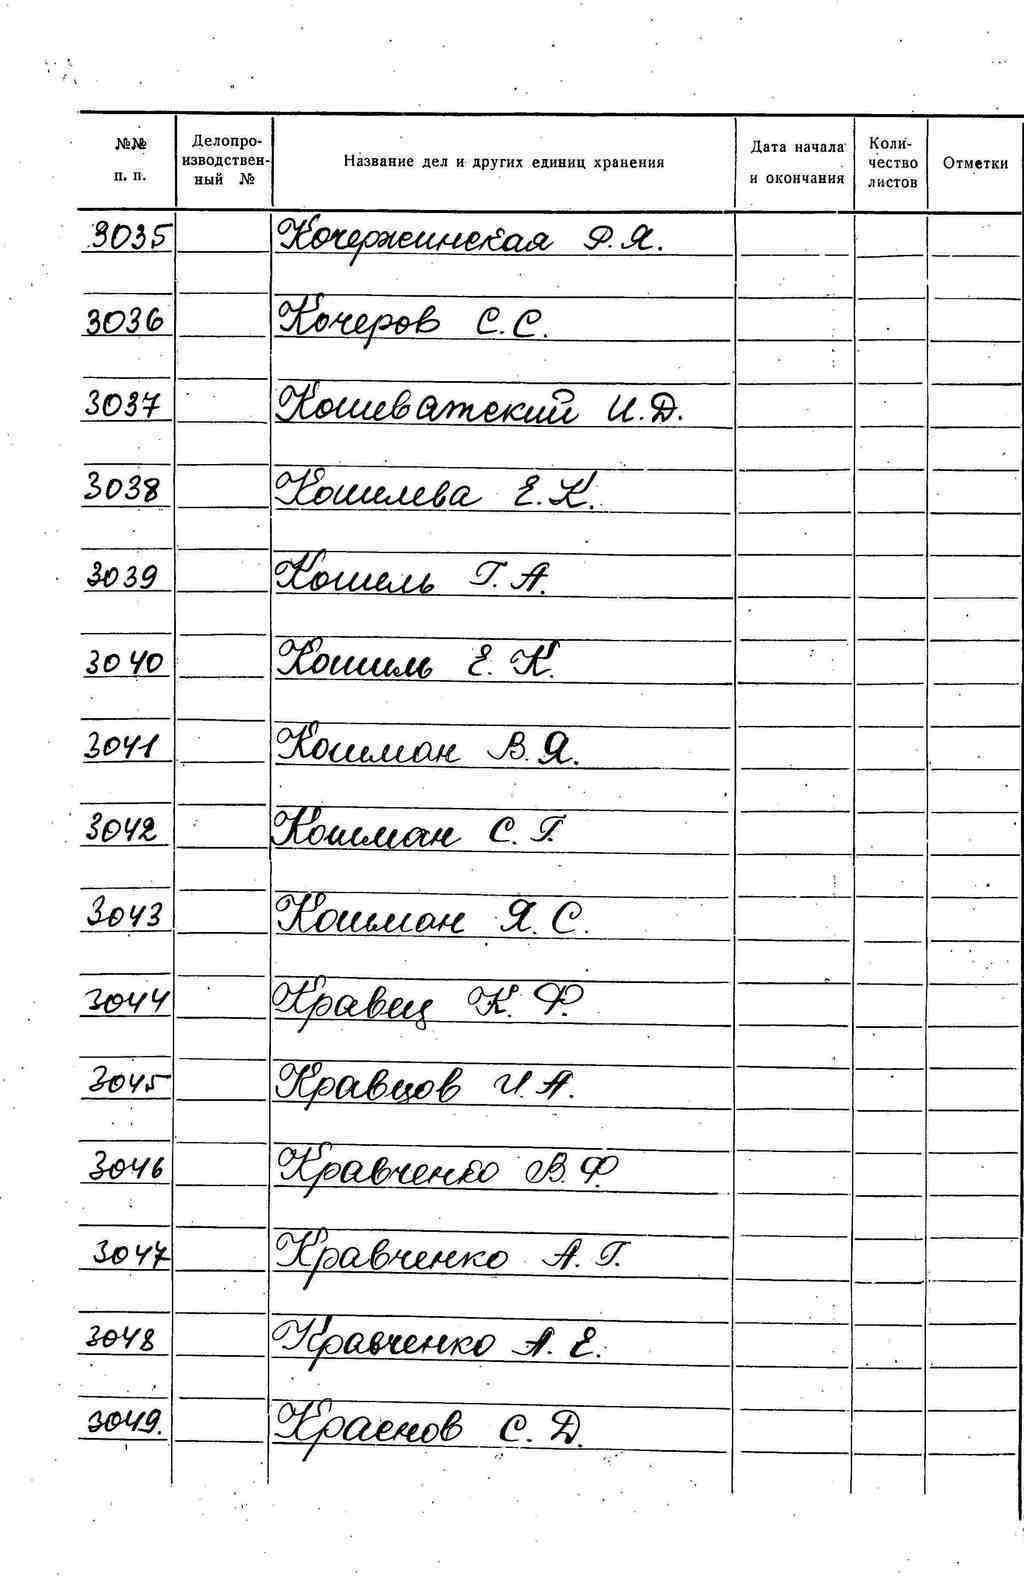 №№ п. п. Делопроизводственный № Название дел и других единиц хранения Дата начала и окончания Количество листов Отметки
3035 Кочержинская Р. Я.
3036 Кочеров С. С.
3037 Кошеватский И. Д.
3038 Кошелева Е. К.
3039 Кошель Г. А.
3040 Кошиль Е. К.
3041 Кошман В. Я.
3042 Кошман С. Г.
3043 Кошман Я. С.
3044 Кравец К. Ф.
3045 Кравцов И. А.
3046 Кравченко В. Ф.
3047 Кравченко А. Г.
3048 Кравченко А. Е.
3049. Краснов С. Д.